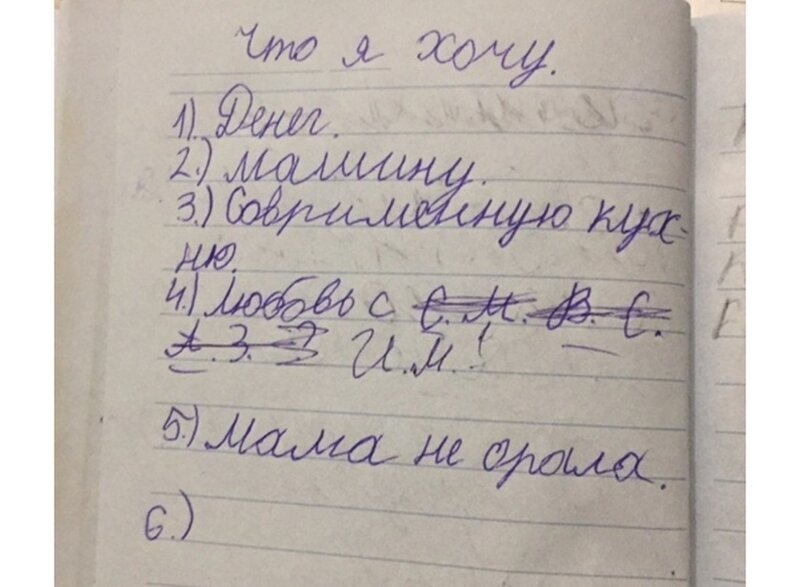 Что я хочу.
1). Денег.
2.) машину.
3.) Современную кух-
ню.
4.) Любовь с С. М. В. С.
А. З. И.М.!
5.) Мама не орала.
6.)